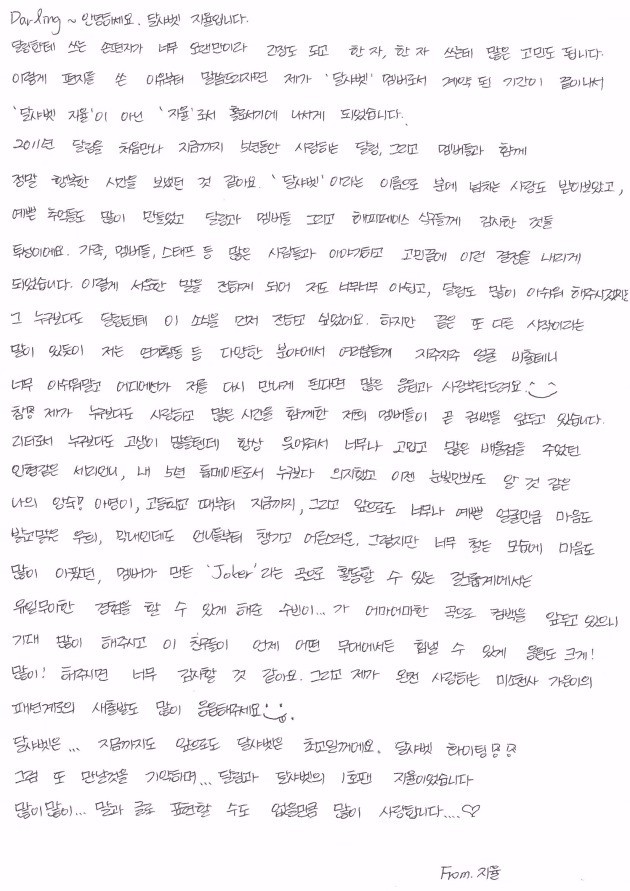 Darling ~ 안녕하세요. 달샤벳 지율입니다.
달링한테 쓰는 손편지가 너무 오랜만이라 긴장도 되고 한 자, 한 자 쓰는데 많은 고민도 됩니다.
이렇게 편지를 쓴 이유부터 말씀드리자면 제가 '달샤벳' 멤버로서 계약 된 기간이 끝이나서
'달샤벳 지율'이 아닌 '지율'로서 홀로서기에 나서게 되었습니다.
2011년 달링을 처음만나 지금까지 5년동안 사랑하는 달링, 그리고 멤버들과 함께
정말 행복한 시간을 보냈던 것 같아요. '달샤벳'이라는 이름으로 분에 넘치는 사랑도 받아보았고,
예쁜 추억들도 많이 만들었고 달링과 멤버들 그리고 해피페이스 식구들께 감사한 것들
투성이에요. 가족, 멤버들, 스태프 등 많은 사람들과 이야기하고 고민끝에 이런 결정을 내리게
되었습니다. 이렇게 서운한 말을 전하게 되어 저도 너무너무 아쉽고, 달링도 많이 아쉬워 해주시겠지만
그 누구보다도 달링한테 이 소식을 먼저 전하고 싶었어요. 하지만 끝은 또 다른 시작이라는
말이 있듯이 저는 연기활동 등 다양한 분야에서 여러분들께 자주자주 얼굴 비출테니
너무 아쉬워말고 어디에선가 저를 다시 만나게 된다면 많은 응원과 사랑부탁드려요.
참! 제가 누구보다도 사랑하고 많은 시간을 함께한 저희 멤버들이 곧 컴백을 앞두고 있습니다.
리더로서 누구보다도 고생이 많을텐데 항상 웃어줘서 너무나 고맙고 많은 배울점을 주었던
인형같은 세리언니, 내 5년 룸메이트로서 누구보다 의지했고 이젠 눈빛만봐도 알 것 같은
나의 앙숙! 아영이, 고등학교 때부터 지금까지, 그리고 앞으로도 너무나 예쁜 얼굴만큼 마음도
밝고맑은 우희, 막내인데도 언니들부터 챙기고 어른스러운, 그렇지만 너무 철든 모습에 마음도
많이 아팠던, 멤버가 만든 'Joker'라는 곡으로 활동할 수 있는 걸그룹계에서는
유일무이한 경험을 할 수 있게 해준 수빈이... 가 어마어마한 곡으로 컴백을 앞두고 있으니
기대 많이 해주시고 이 친구들이 언제 어떤 무대에서든 힘낼 수 있게 응원도 크게!
많이! 해주시면 너무 감사할 것 같아요. 그리고 제가 완전 사랑하는 미소천사 가은이의
패션계로의 새출발도 많이 응원해주세요.
달샤벳은... 지금까지도 앞으로도 달샤벳은 최고일꺼에요. 달샤벳 화이팅!!
그럼 또 만날것을 기약하며... 달링과 달샤벳의 1호팬 지율이었습니다
많이많이... 말과 글로 표현할 수도 없을만큼 많이 사랑합니다....♡
From. 지율